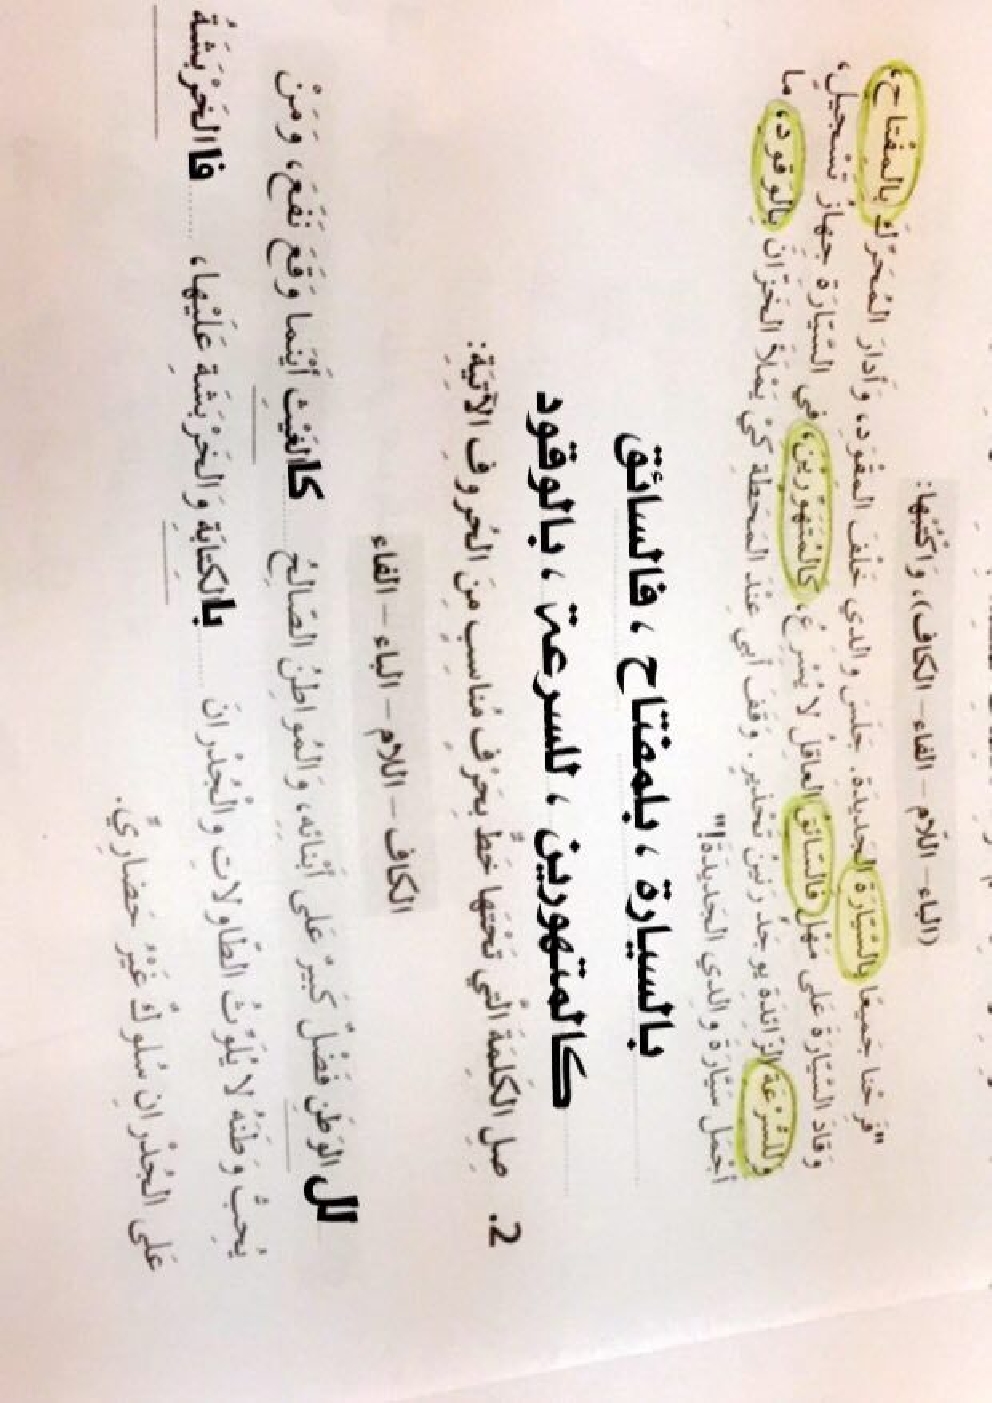 (الباء - اللّام - الفاء - الكاف)، وَاكْتُبْها:
"فَرِحْنا جَميعًا بِالسَّيّارَةِ الجَديدَةِ. جَلَسَ والِدي خَلْفَ المِقْوَدِ، وَأَدارَ المُحَرِّكَ بِالمِفْتاحِ،
وَقادَ السَّيّارَةَ عَلى مَهْلٍ فَالسّائِقُ العاقِلُ لا يُسْرِعُ، كَالمُتَهَوِّرينَ، في السَّيّارَةِ جِهازُ تَسْجيلٍ،
وَلِلسُّرْعَةِ الزّائِدَةِ يوجَدُ رَنينُ تَحْذيرٍ. وَقَفَ أَبي عِنْدَ المَحَطَّةِ كَيْ يَمْلَأَ الخَزّانَ بِالوَقودِ، ما
أَجْمَلَ سَيّارَةَ والِدي الجَديدَةَ!"
بالسيارة ، بلمفتاح ، فالسائق
كالمتهورين ، للسرعة ، بالوقود
2. صِلِ الكَلِمَةَ الَّتي تَحْتَها خَطٌّ بِحَرْفٍ مُناسِبٍ مِنَ الحُروفِ الآتِيَةِ:
الكاف - اللام - الباء - الفاء
لل الوَطَنِ فَضْلٌ كَبيرٌ عَلى أَبْنائِهِ، وَالمُواطِنُ الصّالِحُ كا الغَيْثِ أَيْنَما وَقَعَ نَفَعَ، وَمَنْ
يُحِبُّ وَطَنَهُ لا يُلَوِّثُ الطّاوِلاتِ وَالْجُدْرانَ با لكِتابَةِ وَالخَرْبَشَةِ عَلَيْها، فا الخَرْبَشَةُ
عَلى الجُدْرانِ سُلوكٌ غَيْرُ حَضارِيٍّ.